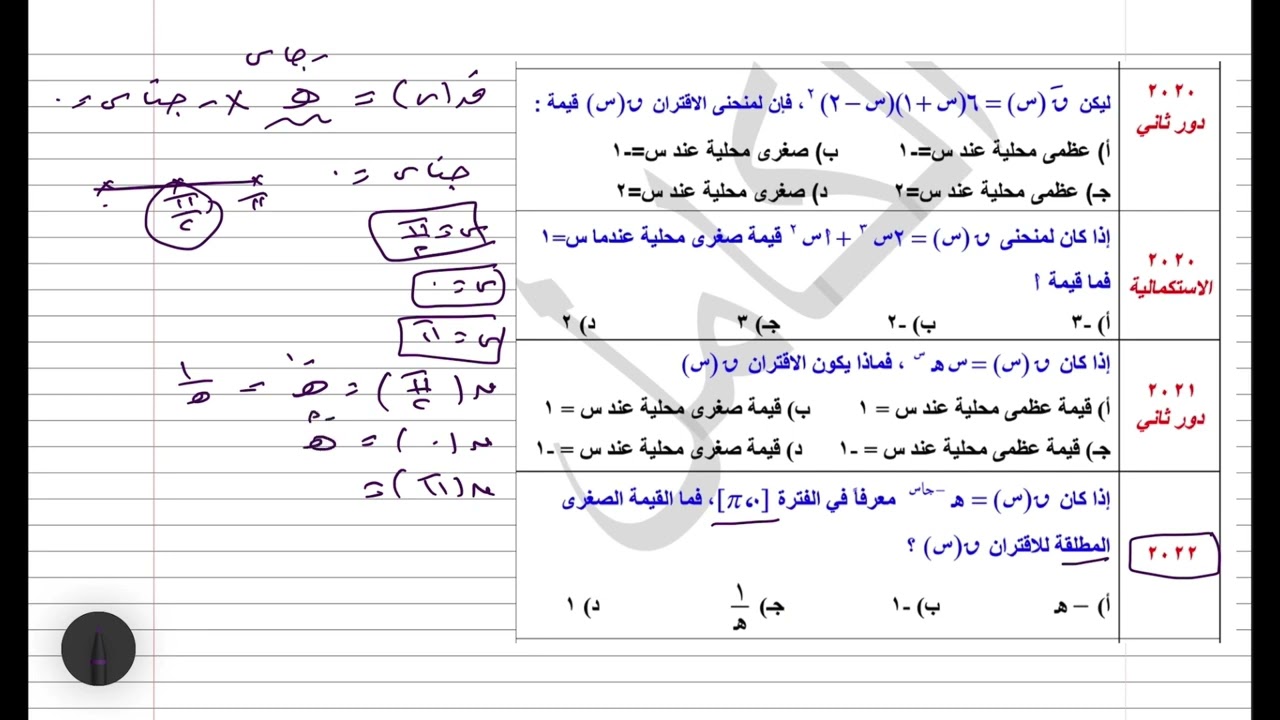 ٢٠٢٠
دور ثاني
ليكن ق َ(س) = ٦(س+١)(س−٢)٢ ، فإن لمنحنى الاقتران ق(س) قيمة :
أ) عظمى محلية عند س=-١ ب) صغرى محلية عند س=-١
جـ) عظمى محلية عند س=٢ د) صغرى محلية عند س=٢
٢٠٢٠
الاستكمالية
إذا كان لمنحنى ق(س) = ٢س٣ + أس٢ قيمة صغرى محلية عندما س=١
فما قيمة أ
أ) -٣ ب) -٢ جـ) ٣ د) ٢
٢٠٢١
دور ثاني
إذا كان ق(س) = س هـ س ، فماذا يكون الاقتران ق(س)
أ) قيمة عظمى محلية عند س = ١ ب) قيمة صغرى محلية عند س = ١
جـ) قيمة عظمى محلية عند س = -١ د) قيمة صغرى محلية عند س = -١
٢٠٢٢
إذا كان ق(س) = هـ −جاس معرفاً في الفترة [π،٠]، فما القيمة الصغرى
المطلقة للاقتران ق(س) ؟
أ) −هـ ب) -١ جـ) ١/هـ د) ١
الكامل
قَ(س) = هـ -جاس × -جتاس = ٠
جتاس = ٠
٠ π/٢ π
س = π/٢
س = ٠
س = π
ق(π/٢) = هـ -١ = ١/هـ
ق(٠) = هـ
ق(π) =